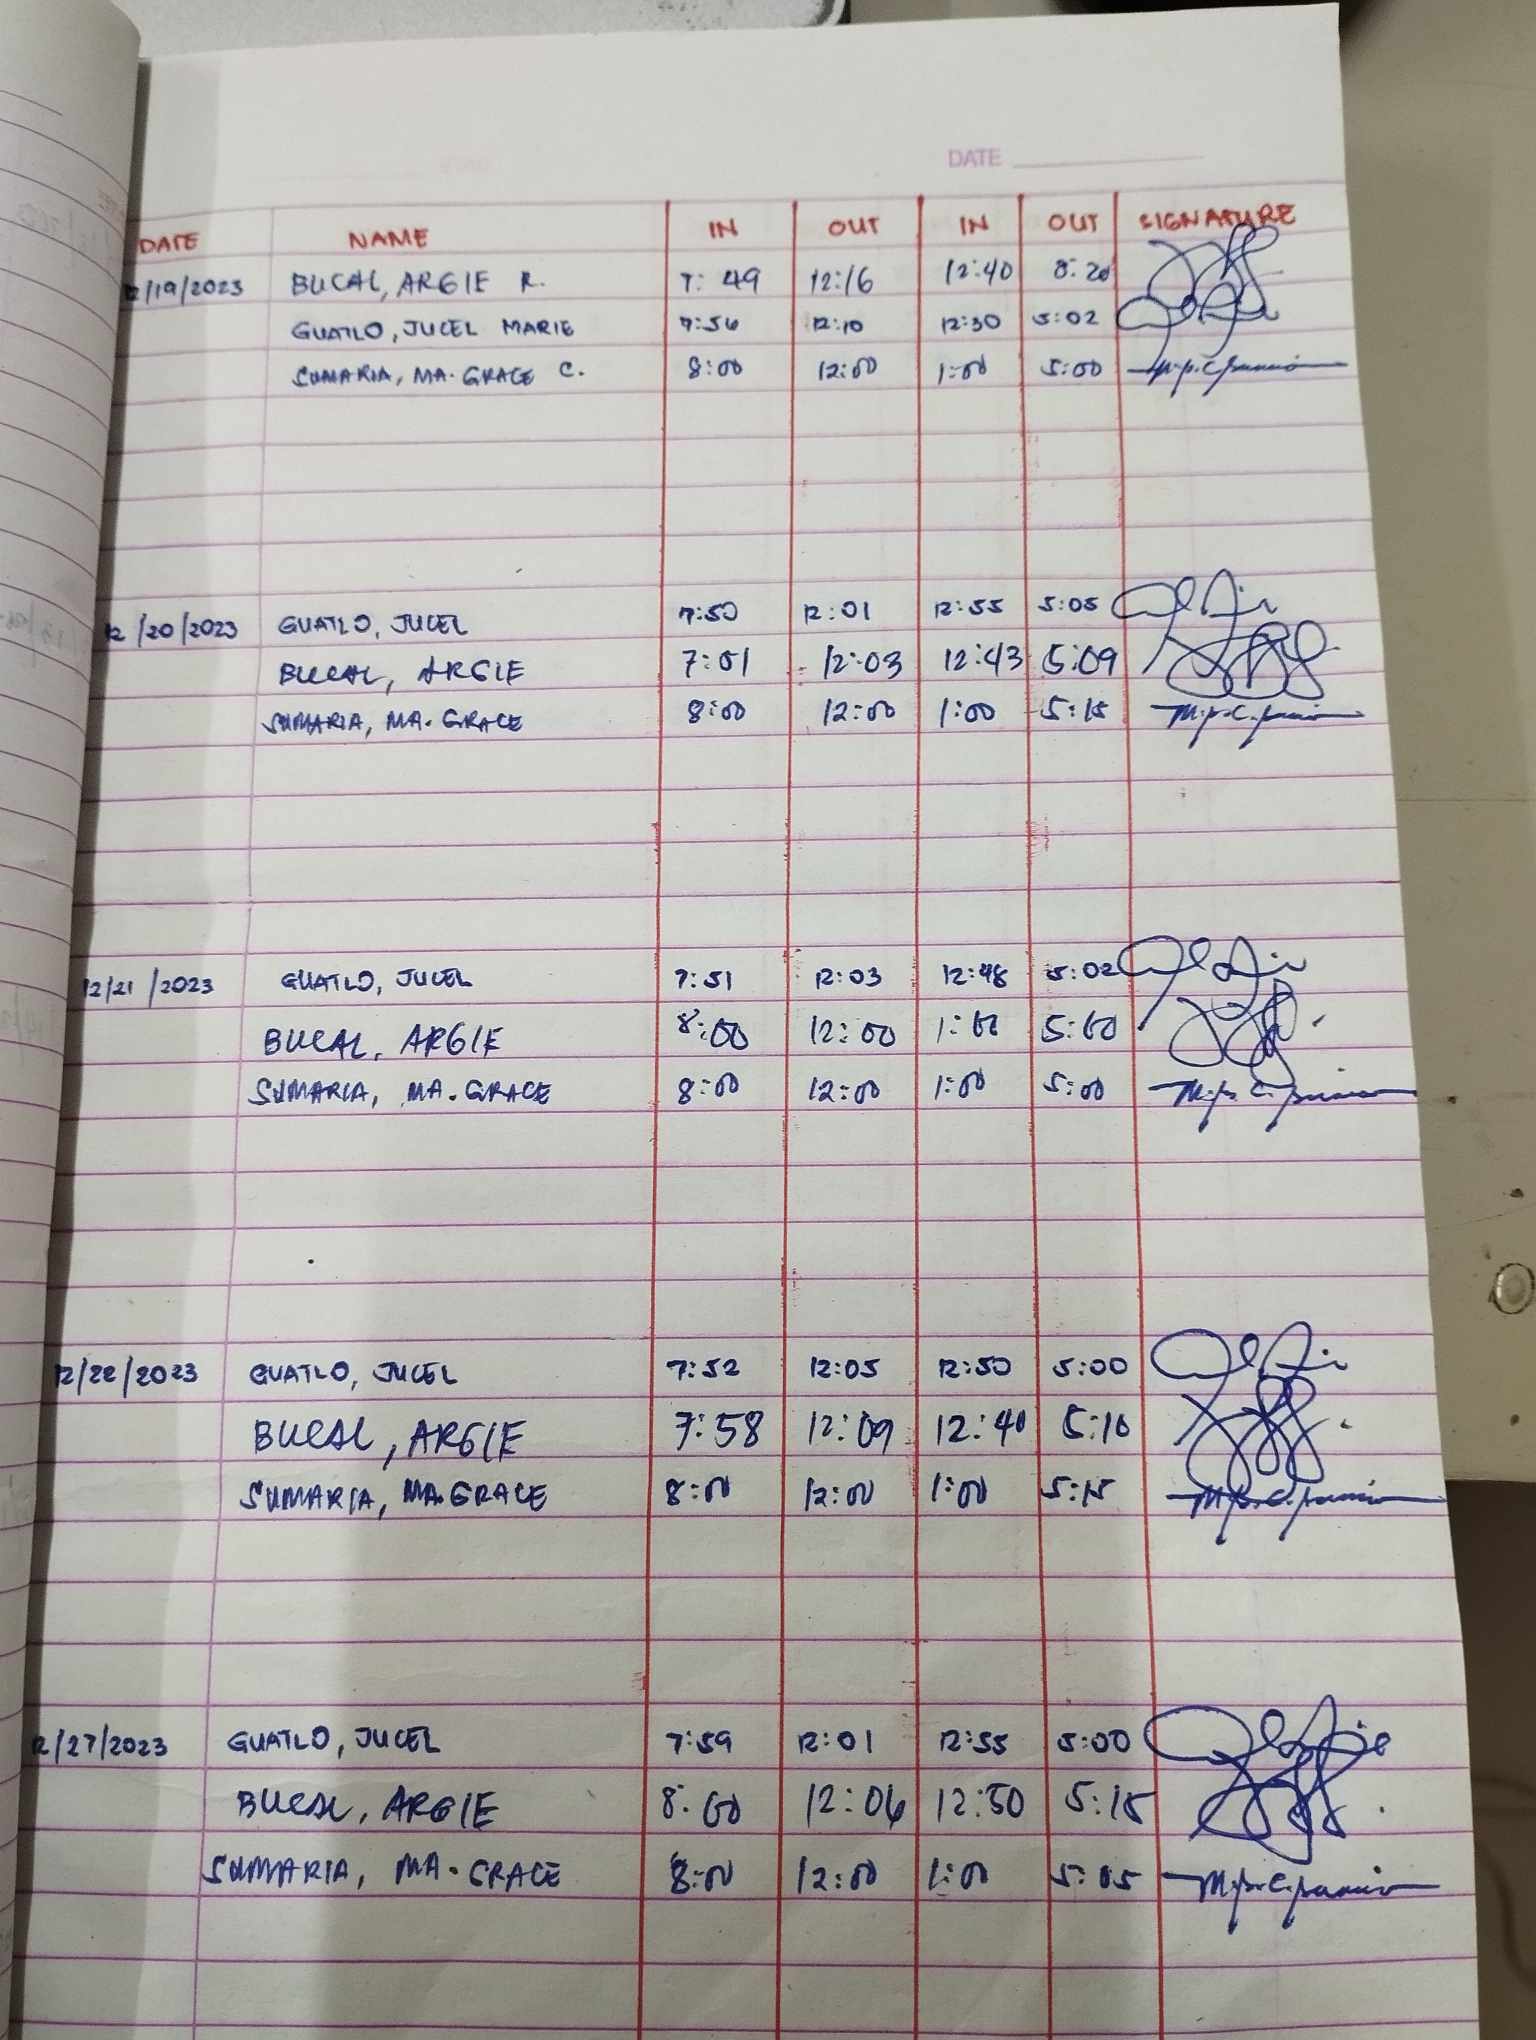 DATE
DATE NAME IN OUT IN OUT SIGNATURE
12/19/2023 BUCAL, ARGIE R. 7:49 12:16 12:40 8:20
GUATLO, JUCEL MARIE 7:56 12:10 12:30 5:02
SUMARIA, MA. GRACE C. 8:00 12:00 1:00 5:00
12/20/2023 GUATLO, JUCEL 7:50 12:01 12:55 5:05
BUCAL, ARGIE 7:01 12:03 12:43 5:09
SUMARIA, MA. GRACE 8:00 12:00 1:00 5:15
12/21/2023 GUATLO, JUCEL 7:51 12:03 12:48 5:02
BUCAL, ARGIE 8:00 12:00 1:00 5:00
SUMARIA, MA. GRACE 8:00 12:00 1:00 5:00
12/22/2023 GUATLO, JUCEL 7:52 12:05 12:50 5:00
BUCAL, ARGIE 7:58 12:09 12:40 5:10
SUMARIA, MA. GRACE 8:00 12:00 1:00 5:15
12/27/2023 GUATLO, JUCEL 7:59 12:01 12:55 5:00
BUCAL, ARGIE 8:00 12:06 12:50 5:15
SUMARIA, MA. GRACE 8:00 12:00 1:00 5:05